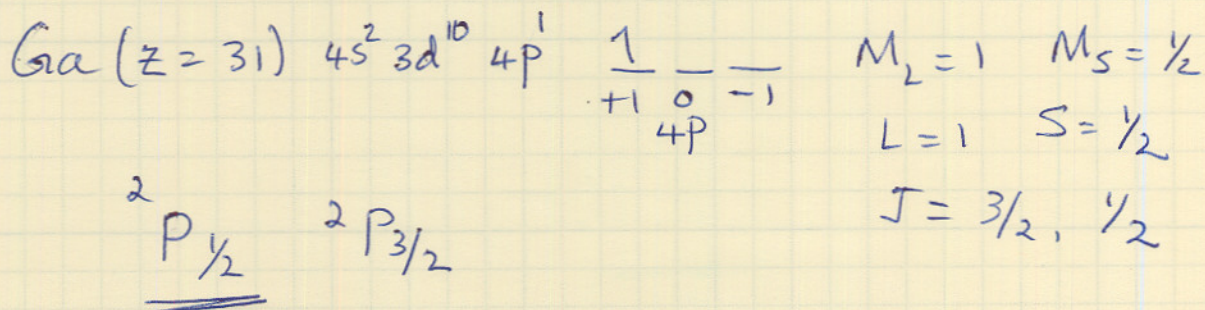 Ga (z = 31) 4s² 3d¹⁰ 4p¹ 1 _ _ M_L = 1 M_S = ½
+1 0 -1
4p L = 1 S = ½
J = 3/2, ½
²P½ ²P3/2